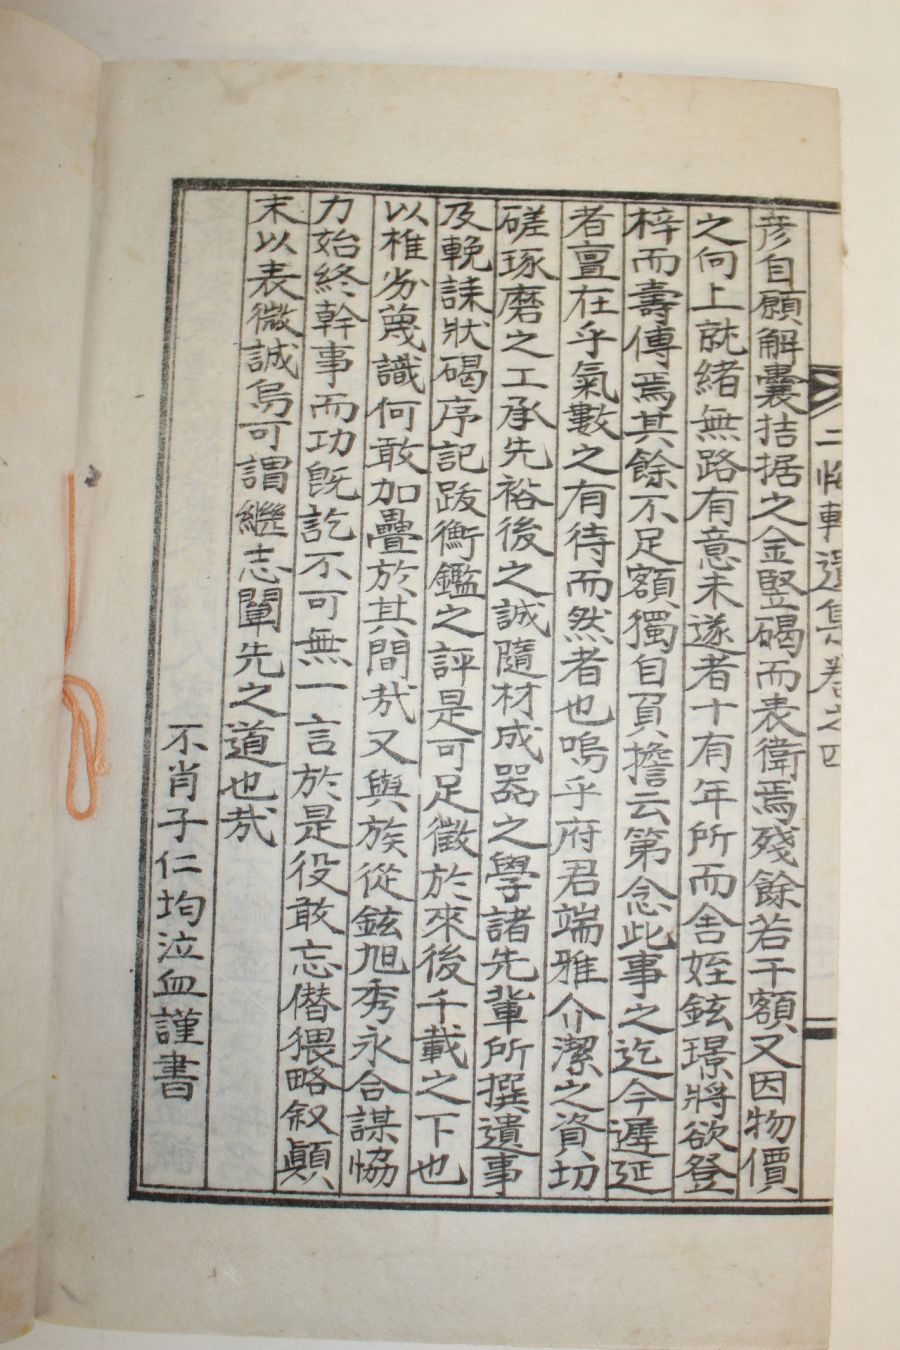 二悔軒遺集卷之四
彦自願解囊拮据之金竪碣而表衛焉殘餘若干額又因物價
之向上就緒無路有意未遂者十有年所而舍姪鉉璟將欲登
梓而壽傳焉其餘不足額獨自負擔云第念此事之迄今遲延
者亶在乎氣數之有待而然者也嗚乎府君端雅介潔之資切
磋琢磨之工承先裕後之誠隨材成器之學諸先輩所撰遺事
及輓誄狀碣序記跋衡鑑之評是可足徵於來後千載之下也
以椎劣蔑識何敢加疊於其間哉又與族從鉉旭秀永合謀恊
力始終幹事而功旣訖不可無一言於是役敢忘僭猥略叙顚
末以表微誠烏可謂繼志闡先之道也哉
不肖子仁均泣血謹書